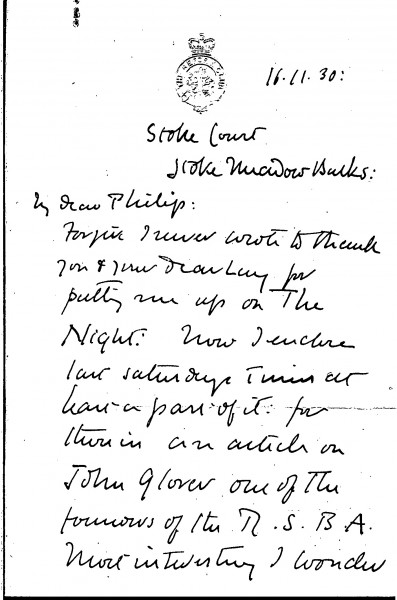 16.11.30:
Stoke Court
Stoke Meadow Bucks:
My dear Philip:
Forgive I never wrote to thank
you & your dear Lady for
putting me up on The
Night: Now I enclose
last saturdays Times at
least a part of it: for
therein an article on
John Glover one of the
founders of the N.S.B.A.
Most interesting I wonder